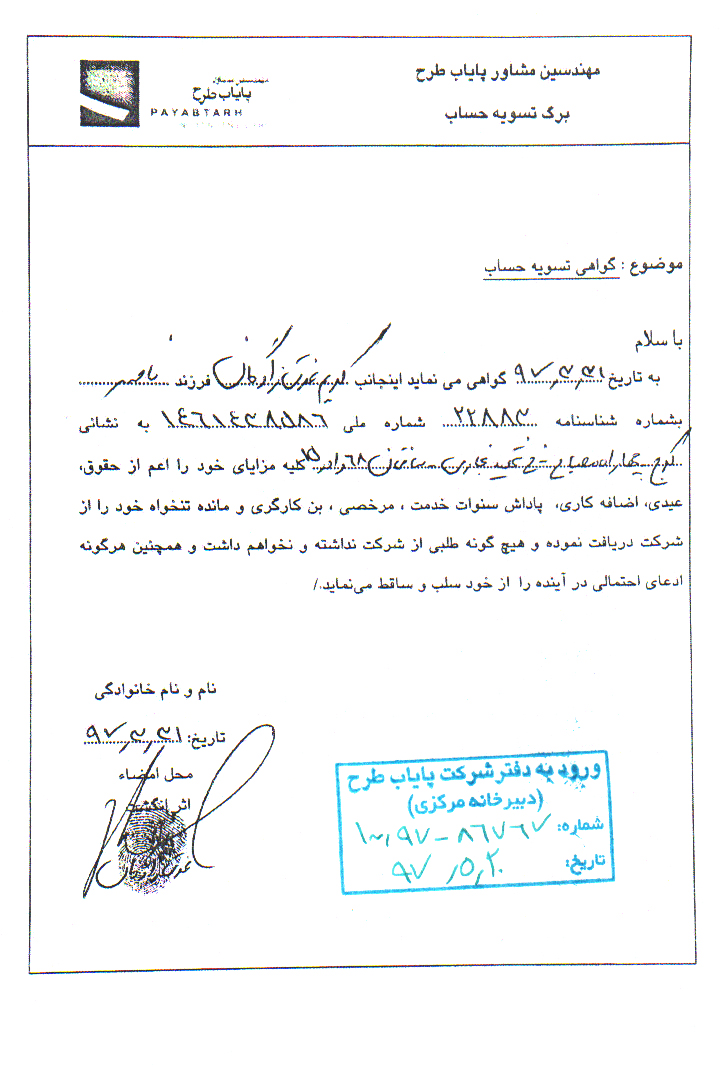 مهندسین مشاور پایاب طرح
برگ تسویه حساب
مهندسین مشاور
پایاب طرح
PAYABTARH
موضوع : گواهی تسویه حساب
با سلام
به تاریخ ۹۷,۳,۳۱ گواهی می نماید اینجانب کریم فرزند ناصر
بشماره شناسنامه ۲۲۸۸۳ شماره ملی ۱۴۶۱۴۳۸۵۸۶ به نشانی
کرج - چهارراه مصباح - ۶۸ کلیه مزایای خود را اعم از حقوق،
عیدی، اضافه کاری، پاداش سنوات خدمت ، مرخصی ، بن کارگری و مانده تنخواه خود را از
شرکت دریافت نموده و هیچ گونه طلبی از شرکت نداشته و نخواهم داشت و همچنین هرگونه
ادعای احتمالی در آینده را از خود سلب و ساقط می‌نماید./
نام و نام خانوادگی
تاریخ: ۹۷,۳,۳۱
محل امضاء
اثر انگشت
ورود به دفتر شرکت پایاب طرح
(دبیرخانه مرکزی)
شماره: ۱۰,۹۷-۸۶۷۶۷
تاریخ: ۹۷,۵,۲۰